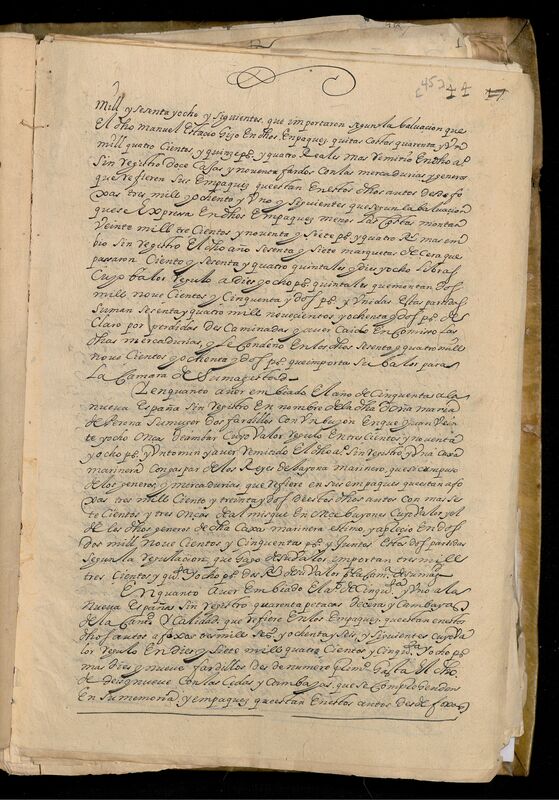 452 44 17
Mill y sesenta y ocho y siguientes, que importaron segun la baluacion que
El dho Manuel Estacio hiço En dhos Empaques quitas Costas quarenta y Un
mill quatro Cientos y quinçe ps y quatro Reales mas remitio En dho año
Sin registro doce Caxas y noventa fardos Con las mercadurias y generos
que refieren sus Empaques questan En estos dhos autos desde fo
xas tres mill y ochenta y Uno y siguientes que segun la baluacion
que se Expresa En dhos Empaques menos Las Costas montan
Veinte mill tre Cientos y noventa y Siete ps y quatro Rs mas em
bio Sin Registro El dho año sesenta y Siete marquetas de Cera que
pessaron Ciento y Sesenta y quatro quintales y dies y ocho libras
Cuyo balor regulo a Dies y ocho ps quintal que montan dos
mill nove Cientos y Cinquenta y dos ps y Unidas Estas partidas
Suman sesenta y quatro mill novecientos y ochenta y dos ps de
Claro por perdidas Des Caminadas y aver Caido En Comiso Las
dhas mercadurias, y Le Condeno En los dhos sesenta y quatro mill
nove Cientos y ochenta y dos ps que importa su balor para
La Camara de Su magestad
En quanto aver embiado El año de Cinquenta a la
nueva España Sin registro En nombre de la dha Doña maria
de Perera Su muger Dos fardillos Con Un buyon En que yvan Vein
te y ocho onças de ambar Cuyo Valor regulo En tres Cientos y noventa
y ocho ps y Un tomin y aver remitido El dho año sin registro Una Caxa
marinera Con gaspar de los Reyes de bayona marinero, que
de los generos, y mercadurias que refiere en sus empaques questan a fo
xas tres mill Ciento y treinta y dos destos dhos autos con mas se
te Cientos y tres onças de almisque En once buyones Cuyo Valor y el
de los dhos generos de dha Caxa marinera estimo,
Dos mill nove Cientos y Cinquenta ps y Juntas Estas dos partidas
Segun la regulaçion, que haço de su Valor importan tres mill
tres Cientos y ocho ps dos Rs
En quanto aver Embiado El año de Cinqta y Uno a la
nueva España sin registro quarenta petacas de Cera y Cambayas
de la Cantd y Calidad que refiere En los Empaques questan en estos
dhos autos a foxas dos mill y ochenta y seis y siguientes Cuyo Va
lor regulo En dies y Siete mill quatro Cientos y Cinqta y ocho ps
mas dies y nueve fardillos des de numero primo hasta El dho
de dies y nueve Con las Cedas y Cambayas que se Comprehenden
En su memoria y empaques questan En estos autos desde foxas